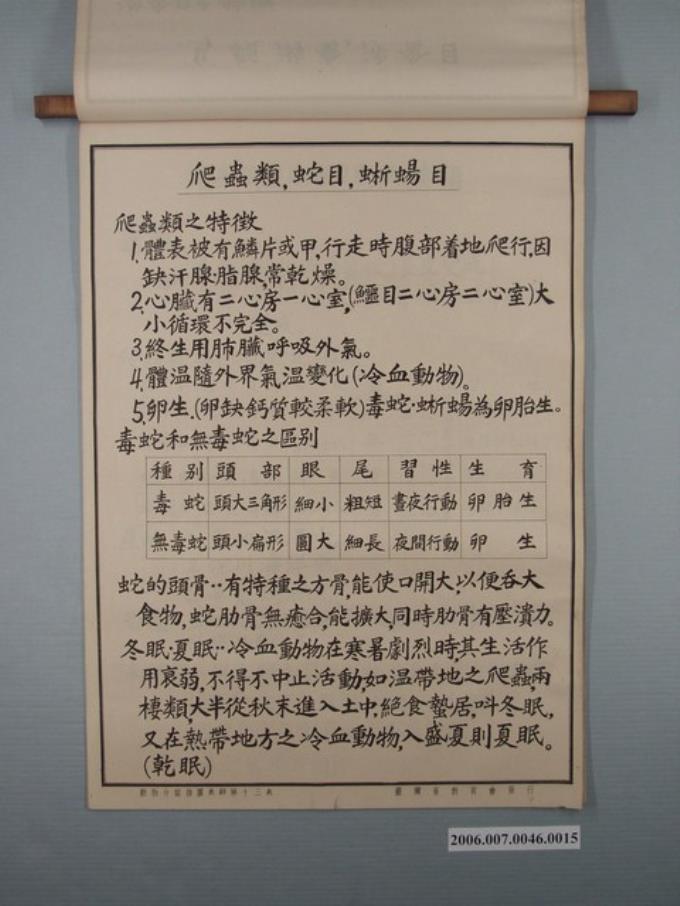 爬蟲類,蛇目,蜥蝪目
爬蟲類之特徵
1.體表被有鱗片或甲,行走時腹部着地爬行,因
缺汗腺·脂腺,常乾燥。
2.心臟有二心房一心室,(鱷目二心房二心室)大
小循環不完全。
3.終生用肺臟呼吸外氣。
4.體温隨外界氣温變化(冷血動物)。
5.卵生.(卵缺鈣質較柔軟)毒蛇·蜥蝪為卵胎生。
毒蛇和無毒蛇之區别
種别 頭部 眼 尾 習性 生育
毒蛇 頭大三角形 細小 粗短 晝夜行動 卵胎生
無毒蛇 頭小扁形 圓大 細長 夜間行動 卵生
蛇的頭骨··有特種之方骨,能使口開大,以便吞大
食物,蛇肋骨無癒合,能擴大,同時肋骨有壓潰力。
冬眠·夏眠··冷血動物在寒暑劇烈時,其生活作
用衰弱,不得不中止活動,如温帶地之爬蟲,兩
棲類,大半從秋末進入土中,絕食蟄居,叫冬眠,
又在熱帶地方之冷血動物,入盛夏則夏眠。
(乾眠)
2006.007.0046.0015